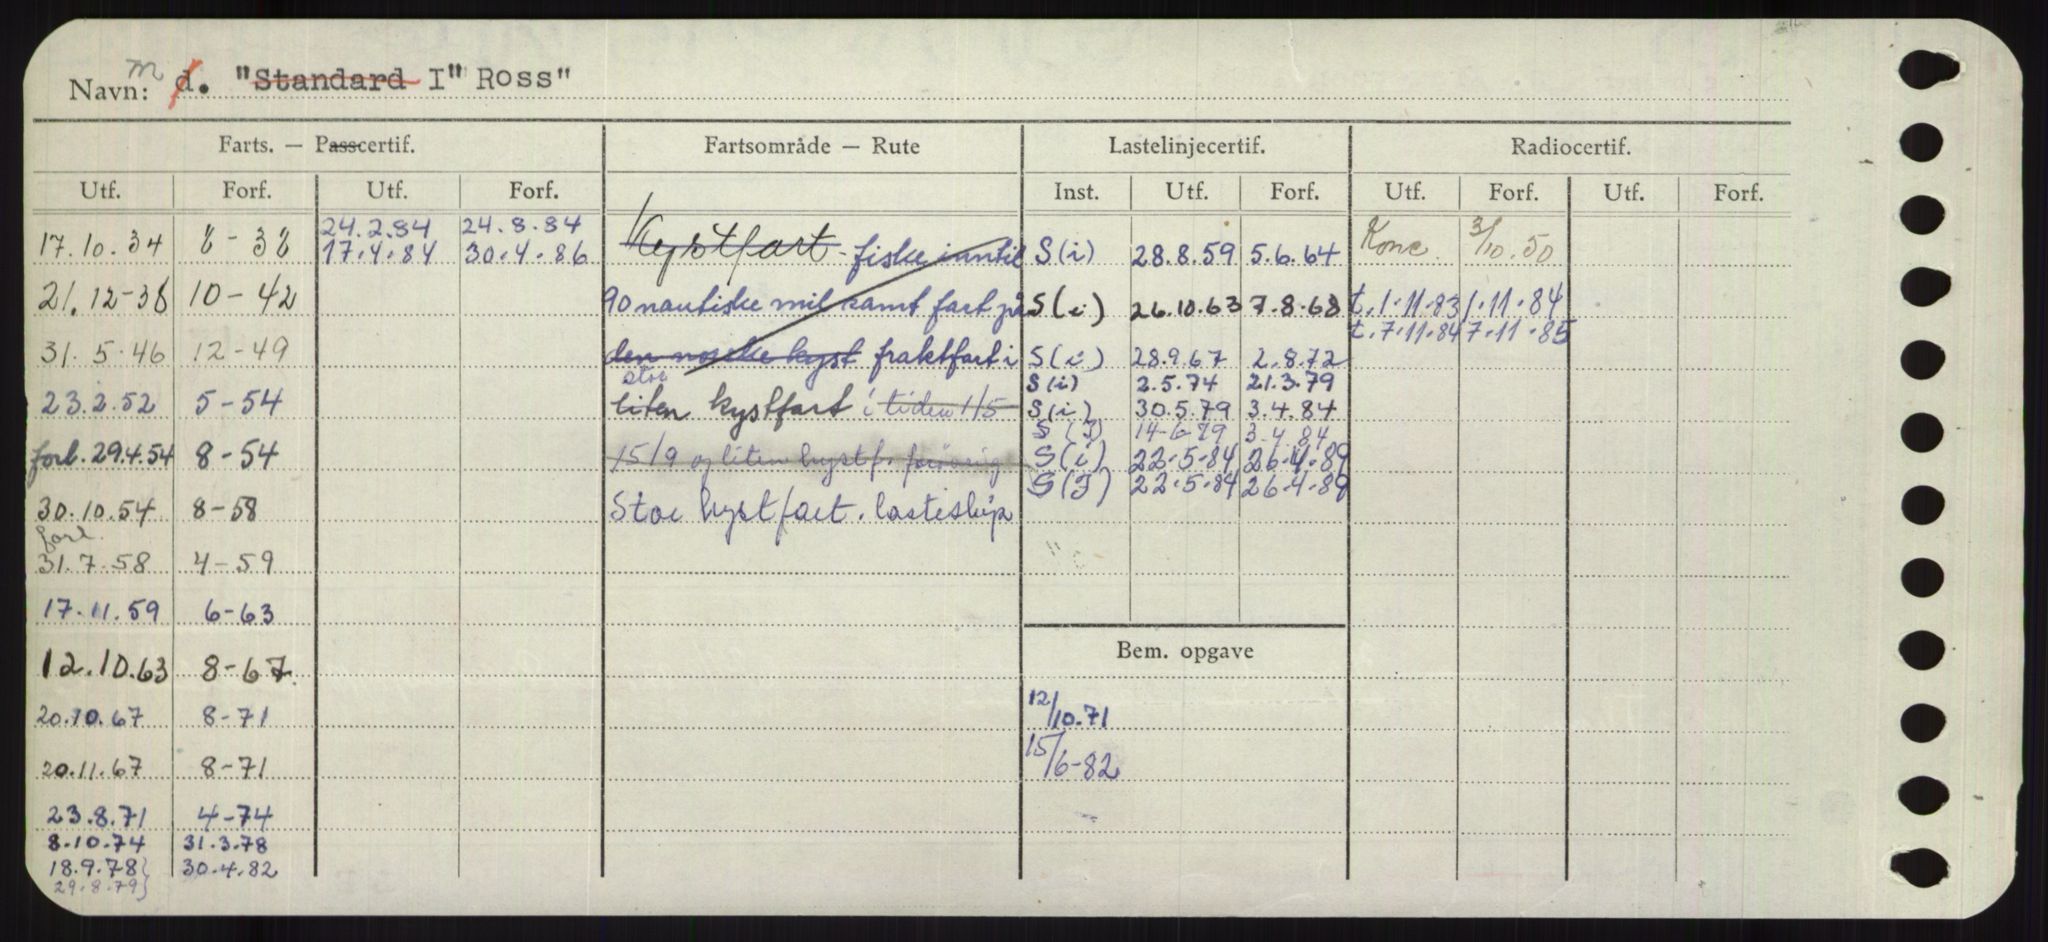 Navn: m d. "Standard I" Ross"
Farts. — Passcertif. Fartsområde — Rute Lastelinjecertif. Radiocertif.
Utf. Forf. Utf. Forf. Inst. Utf. Forf. Utf. Forf. Utf. Forf.
24.2.84 24.8.84
17.10.34 8-38 17.4.84 30.4.86 Kystfart - fiske inntil S(i) 28.8.59 5.6.64 Konc. 3/10.50
21.12-38 10-42 90 nautiske mil samt fart på S(i) 26.10.63 7.8.68 t.1.11.83 1.11.84
t.7.11.84 7.11.85
31.5.46 12-49 den norske kyst fraktfart i S(i) 28.9.67 2.8.72
stor S(i) 2.5.74 21.3.79
23.2.52 5-54 liten kystfart i tiden 1/5 S(i) 30.5.79 3.4.84
S(F) 14-6-79 3-4 84
forl. 29.4.54 8-54 15/9 og liten kystf. forøvrig S(i) 22.5.84 26.4.89
S(F) 22.5.84 26.4.89
30.10.54 8-58 Stor kystfart. lasteskip
forl.
31.7.58 4-59
17.11.59 6-63
Bem. opgave
12.10.63 8-67.
20.10.67 8-71 12/10.71
20.11.67 8-71 15/6-82
23.8.71 4-74
8.10.74 31.3.78
18.9.78} 30.4.82
29.8.79}